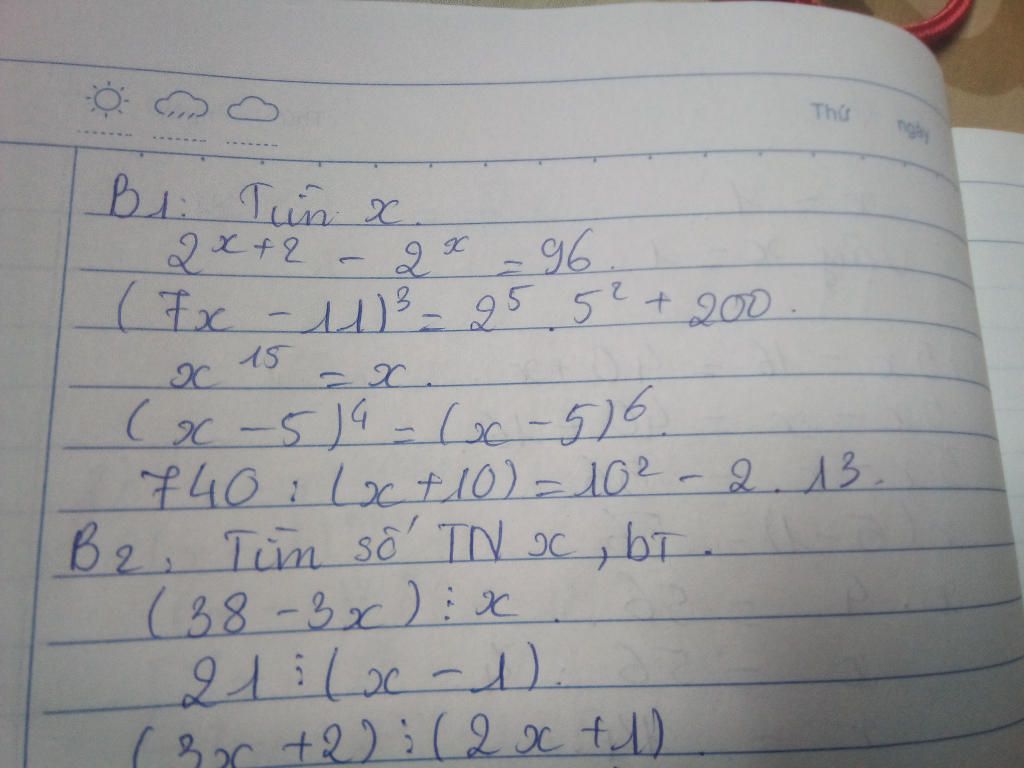 Thứ ngày
B1: Tìm x.
2^{x+2} - 2^x = 96.
(7x - 11)^3 = 2^5 . 5^2 + 200.
x^{15} = x.
(x - 5)^4 = (x - 5)^6.
740 : (x+10) = 10^2 - 2 . 13.
B2: Tìm số TN x, bT.
(38 - 3x) ⋮ x.
21 ⋮ (x - 1).
(3x + 2) ⋮ (2x + 1).